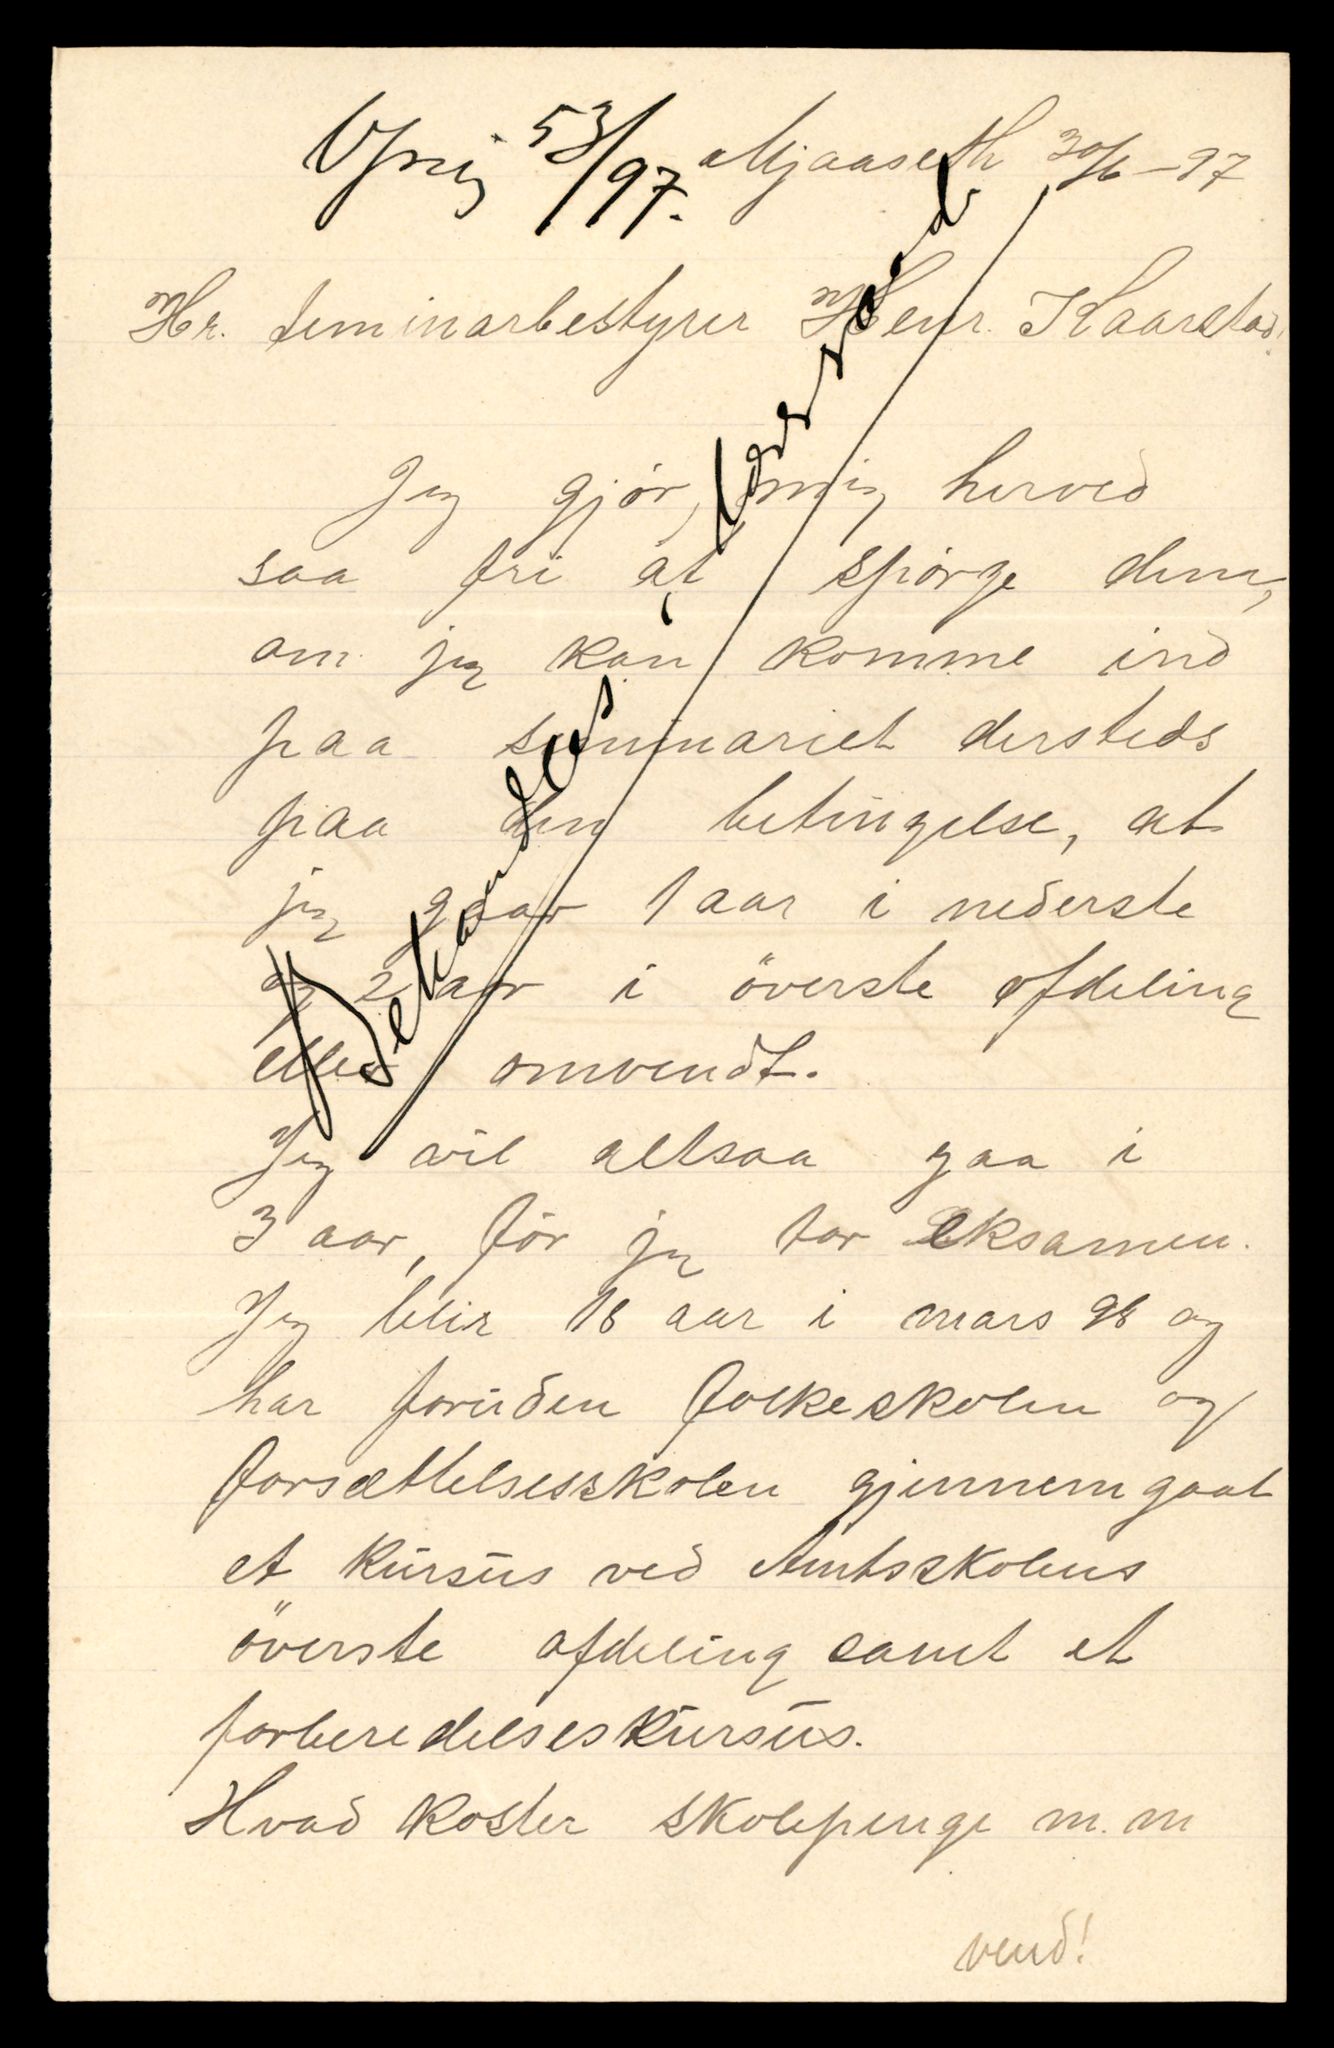 53/97. Mjaaseth 30/6–97
Hr. seminarbestyrer Henr. Kaarstad.
Jeg gjör mig herved
saa fri at spörge dem,
om jeg kan komme ind
paa seminariet dersteds
paa den betingelse, at
jeg gaar 1 aar i nederste
og 2 aar i överste afdeling
eller omvendt.
Jeg vil altsaa gaa i
3 aar, för jeg tar eksamen.
Jeg blir 18 aar i mars 98 og
har foruden folkeskolen og
forsættelsesskolen gjennemgaat
et kursus ved Amtsskolens
överste afdeling samt et
forberedelseskursus.
Hvad koster skolepenge m.m
vend!